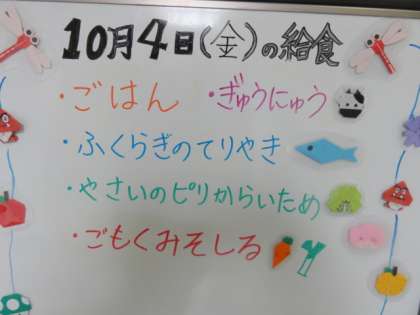 10月4日(金)の給食
・ごはん ・ぎゅうにゅう
・ふくらぎのてりやき
・やさいのピリからいため
・ごもくみそしる